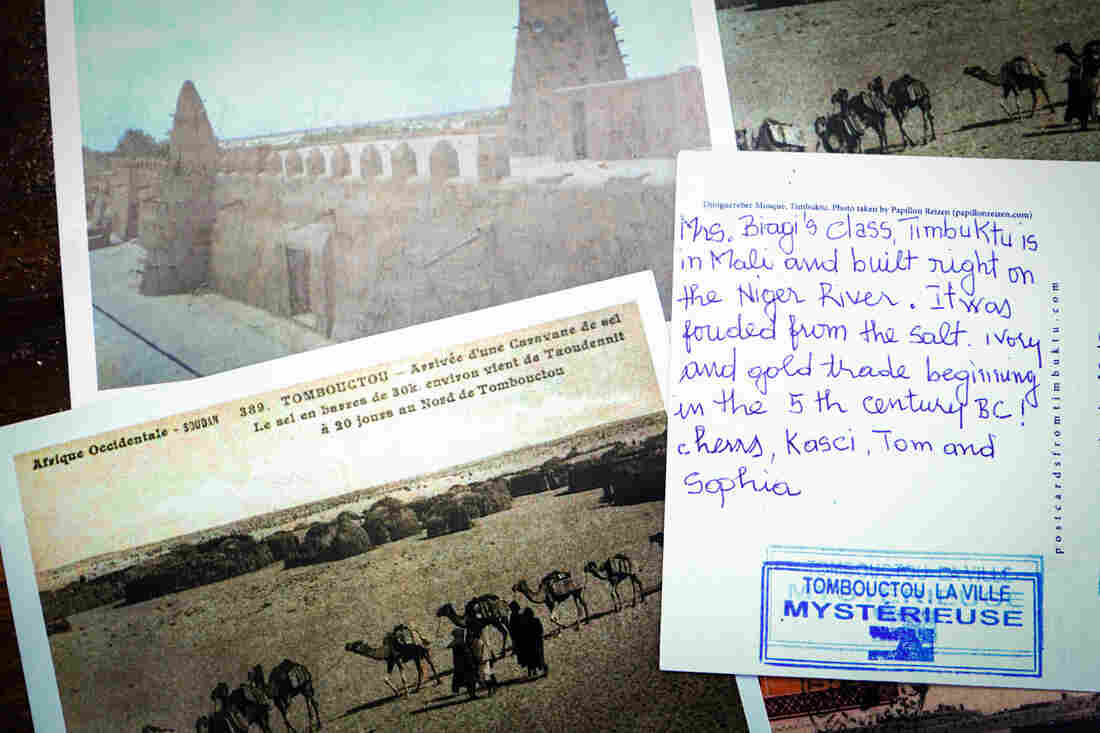 Afrique Occidentale - SOUDAN
389. TOMBOUCTOU — Arrivée d'une Caravane de sel
Le sel en barres de 30k. environ vient de Taoudennit
à 20 jours au Nord de Tombouctou
Djinguereber Mosque, Timbuktu. Photo taken by Papillon Reizen (papillonreizen.com)
Mrs. Biagi's Class, Timbuktu is
in Mali and built right on
the Niger River. It was
fouded from the salt. ivory
and gold trade beginning
in the 5th century BC!
cherrs, Kasci, Tom and
Sophia
postcardsfromtimbuktu.com
TOMBOUCTOU, LA VILLE
MYSTÉRIEUSE